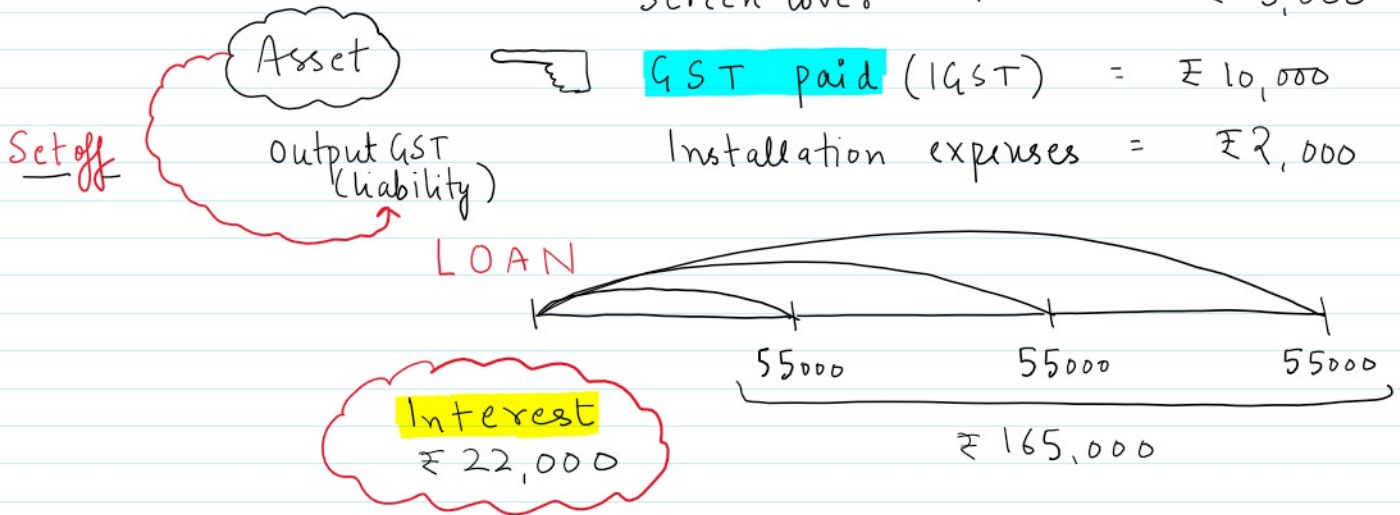 Asset
GST paid (IGST) = ₹ 10,000
Set off
Output GST
(liability)
Installation expenses = ₹2,000
LOAN
55000 55000 55000
Interest
₹ 22,000
₹ 165,000